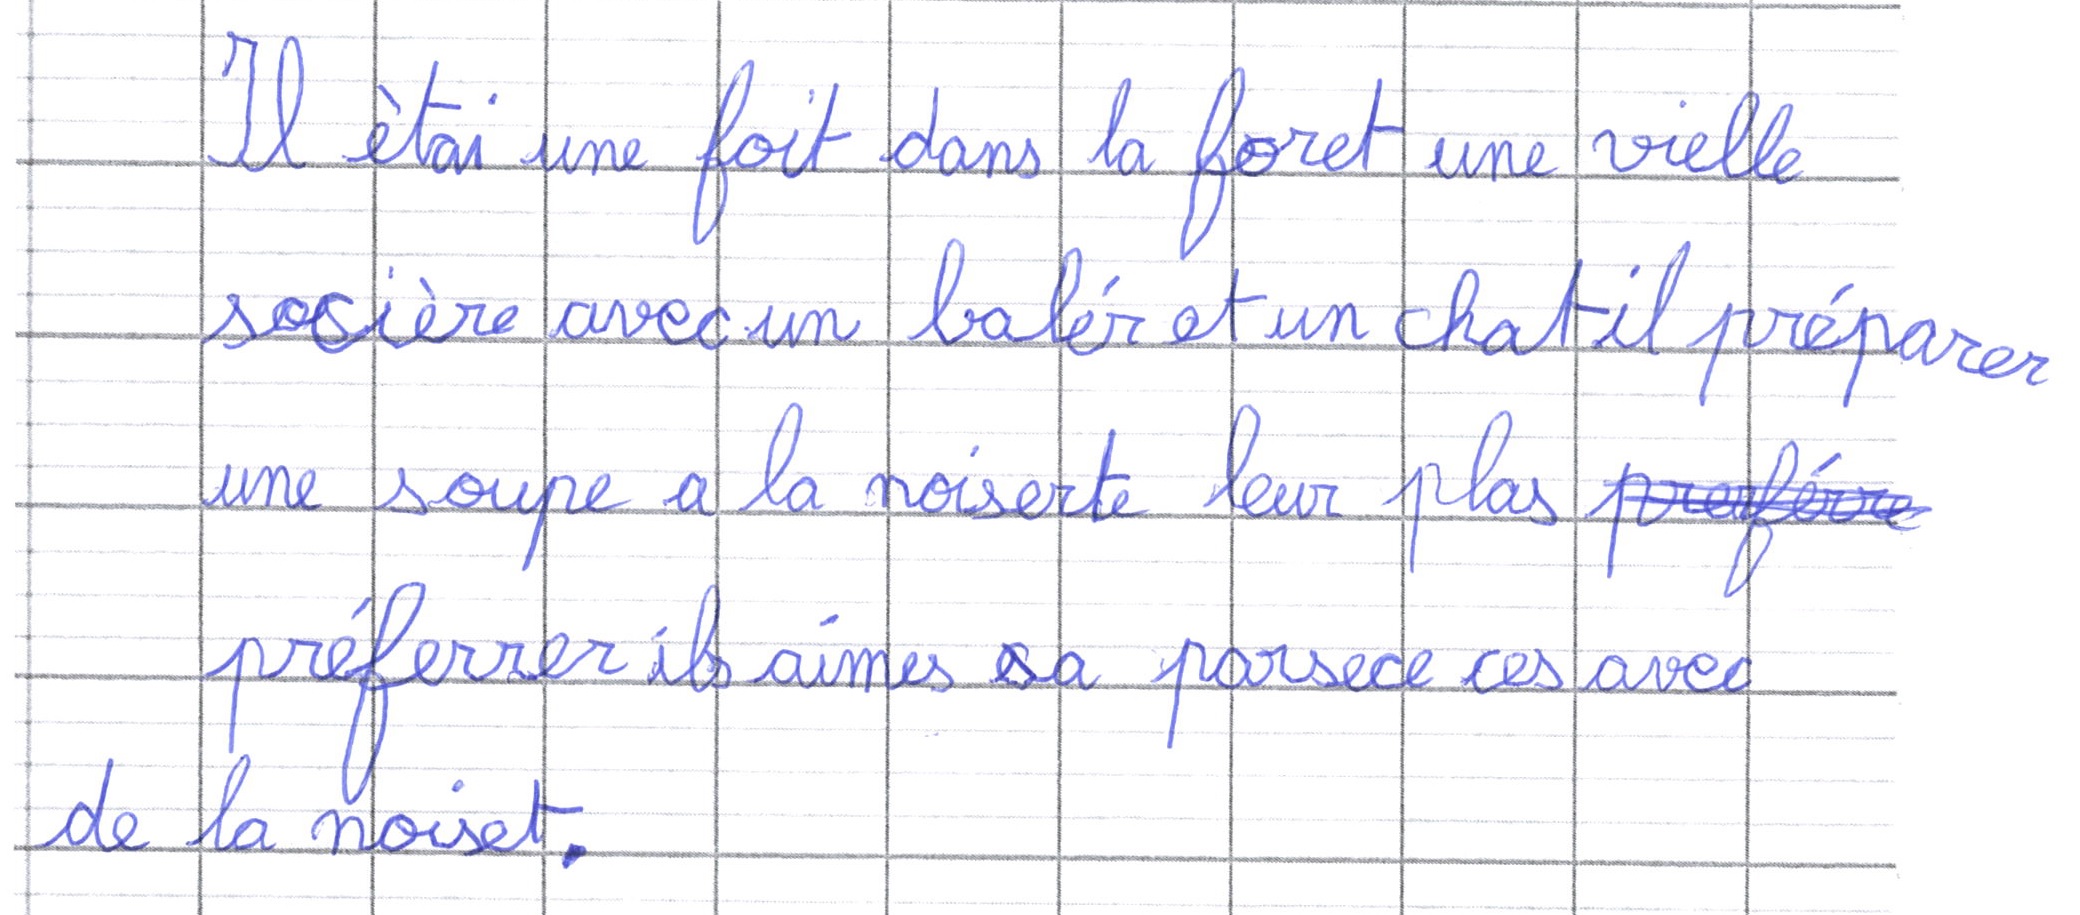 Il ètai une foit dans la foret une vielle
socière avec un balér et un chat il préparer
une soupe a la noiserte leur plas
préferrer ils aimes sa parsece ces avec
de la noiset.